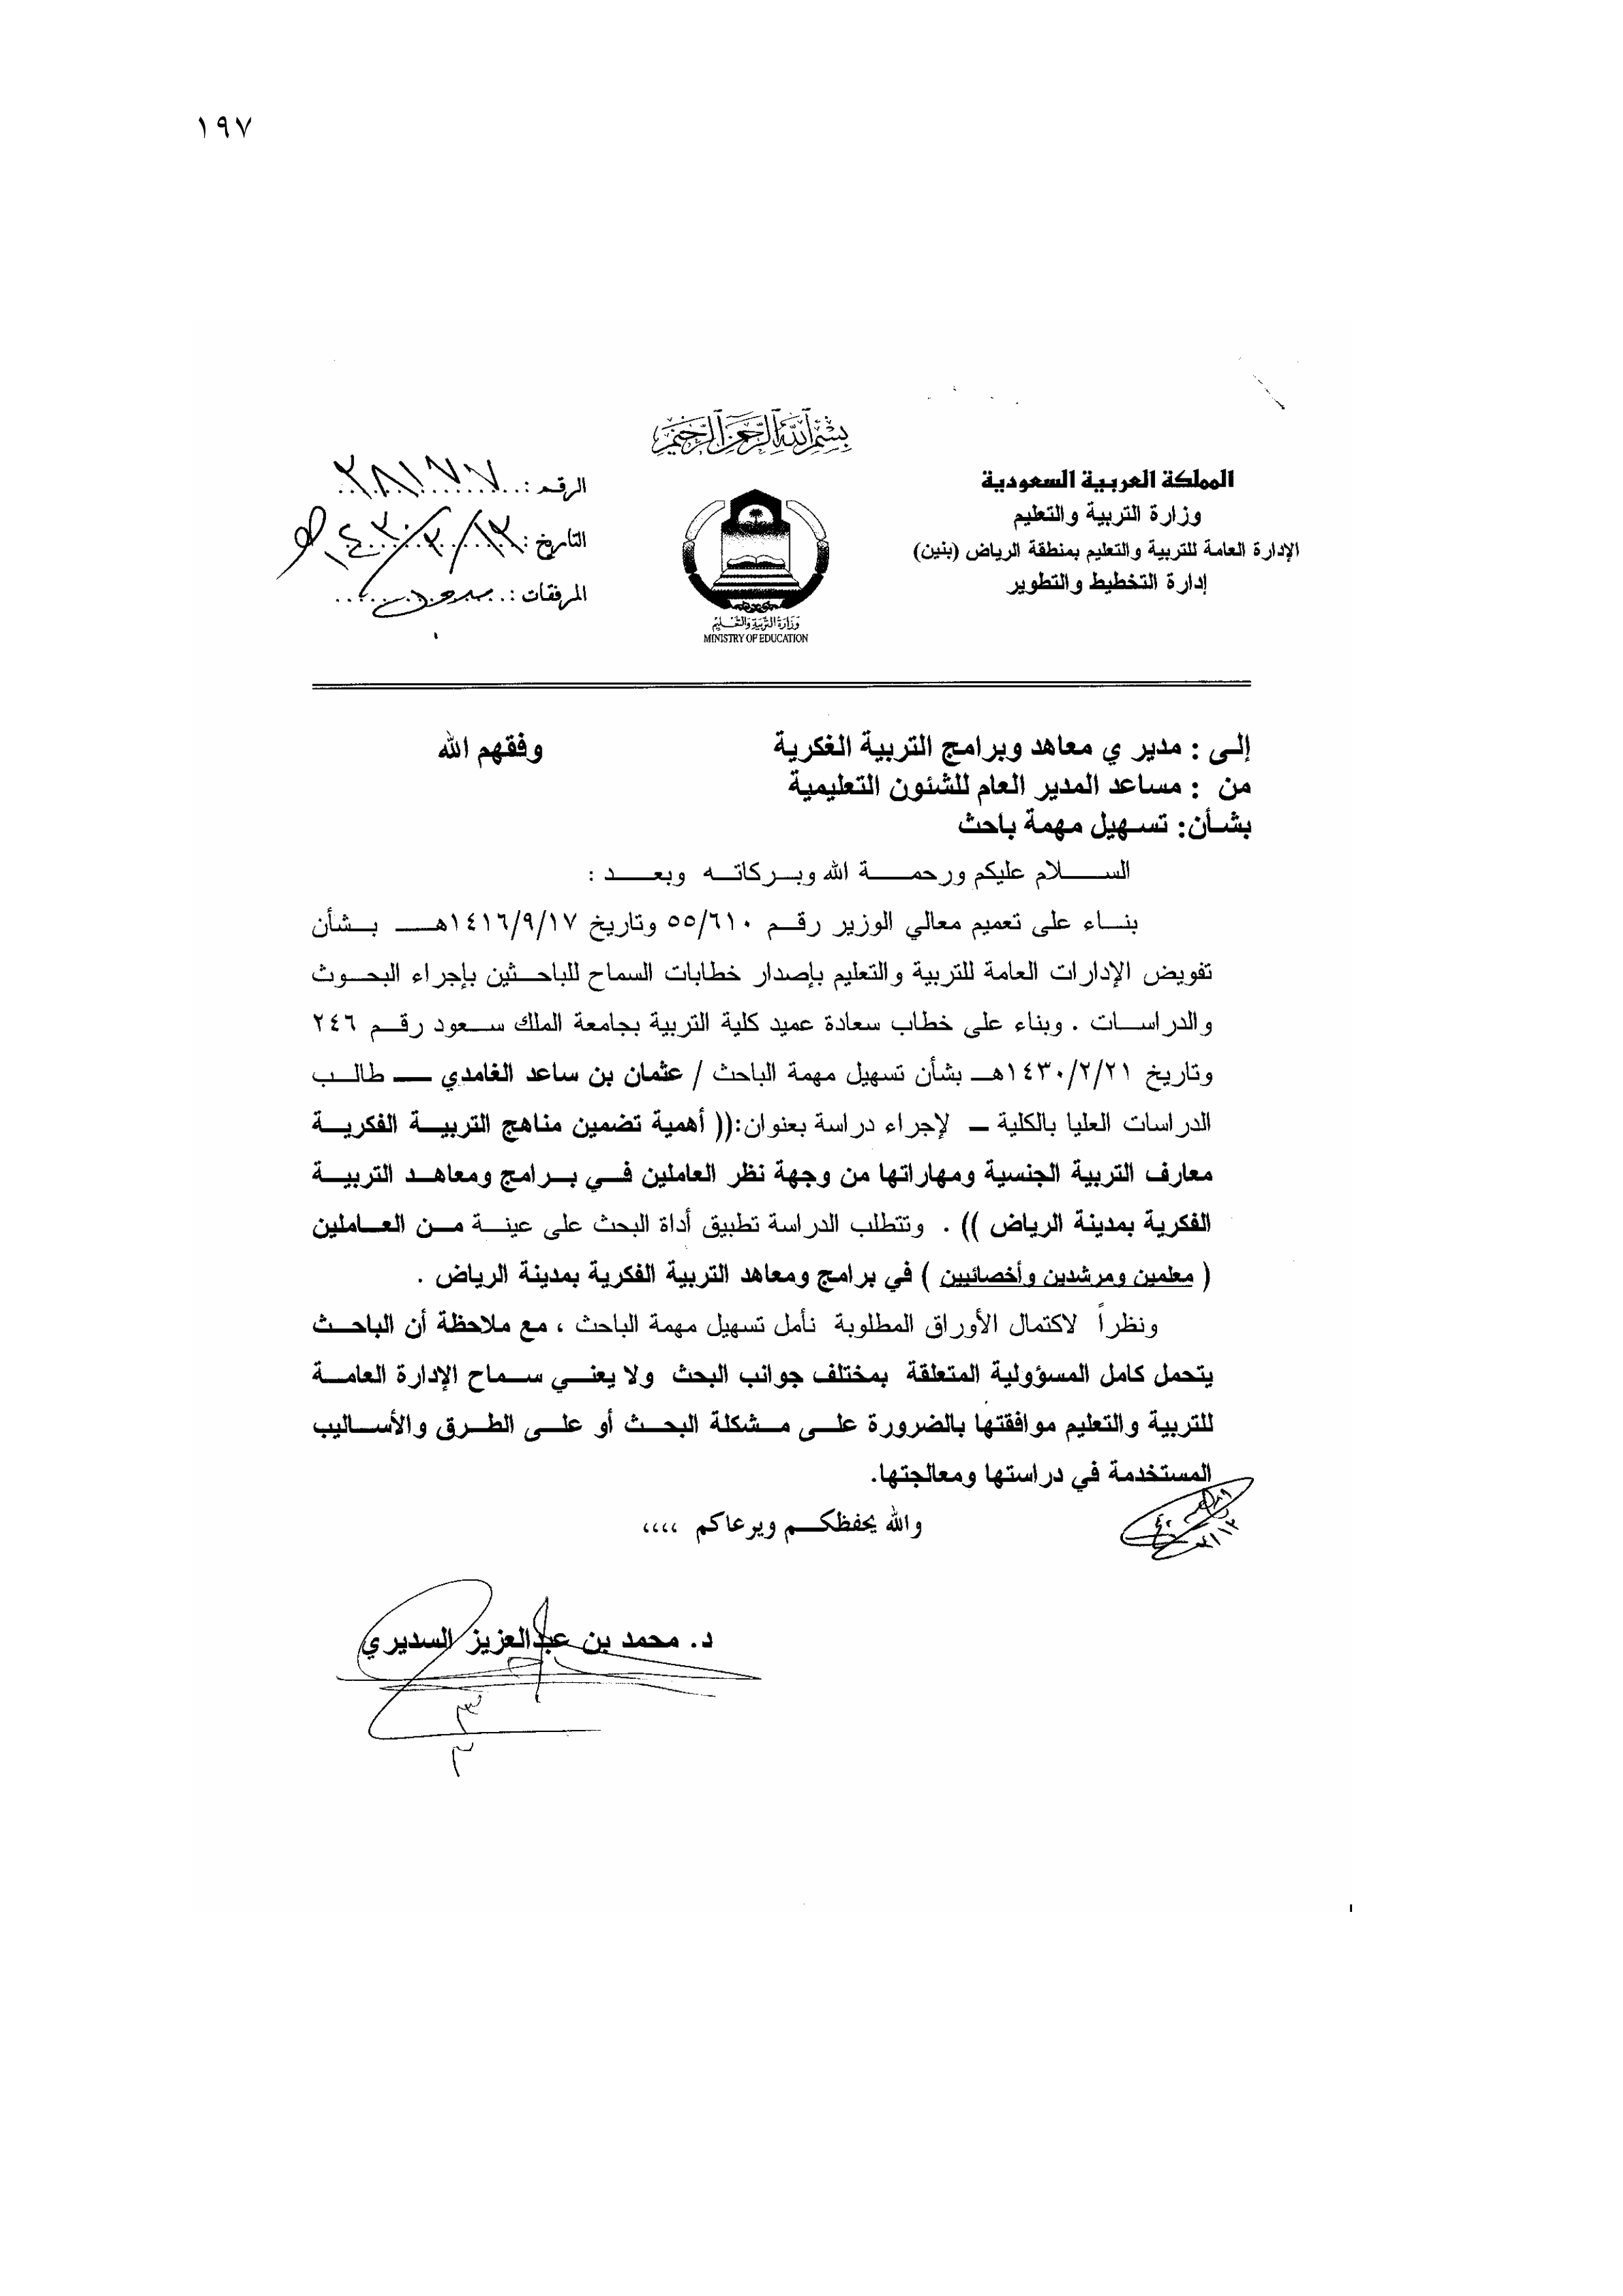 ١٩٧
بسم الله الرحمن الرحيم
المملكة العربية السعودية
وزارة التربية والتعليم
الإدارة العامة للتربية والتعليم بمنطقة الرياض (بنين)
إدارة التخطيط والتطوير
وزارة التربية والتعليم
MINISTRY OF EDUCATION
الرقم :
التاريخ :
المرفقات :
إلى : مدير ي معاهد وبرامج التربية الفكرية وفقهم الله
من : مساعد المدير العام للشئون التعليمية
بشأن: تسهيل مهمة باحث
السلام عليكم ورحمة الله وبركاته وبعد :
بناء على تعميم معالي الوزير رقم ٥٥/٦١٠ وتاريخ ١٤١٦/٩/١٧هـ بشأن
تفويض الإدارات العامة للتربية والتعليم بإصدار خطابات السماح للباحثين بإجراء البحوث
والدراسات . وبناء على خطاب سعادة عميد كلية التربية بجامعة الملك سعود رقم ٢٤٦
وتاريخ ١٤٣٠/٢/٢١هـ بشأن تسهيل مهمة الباحث / عثمان بن ساعد الغامدي ـ طالب
الدراسات العليا بالكلية ـ لإجراء دراسة بعنوان:(( أهمية تضمين مناهج التربية الفكرية
معارف التربية الجنسية ومهاراتها من وجهة نظر العاملين في برامج ومعاهد التربية
الفكرية بمدينة الرياض )) . وتتطلب الدراسة تطبيق أداة البحث على عينة من العاملين
( معلمين ومرشدين وأخصائيين ) في برامج ومعاهد التربية الفكرية بمدينة الرياض .
ونظراً لاكتمال الأوراق المطلوبة نأمل تسهيل مهمة الباحث ، مع ملاحظة أن الباحث
يتحمل كامل المسؤولية المتعلقة بمختلف جوانب البحث ولا يعني سماح الإدارة العامة
للتربية والتعليم موافقتها بالضرورة على مشكلة البحث أو على الطرق والأساليب
المستخدمة في دراستها ومعالجتها.
والله يحفظكم ويرعاكم ،،،،
د. محمد بن عبدالعزيز السديري